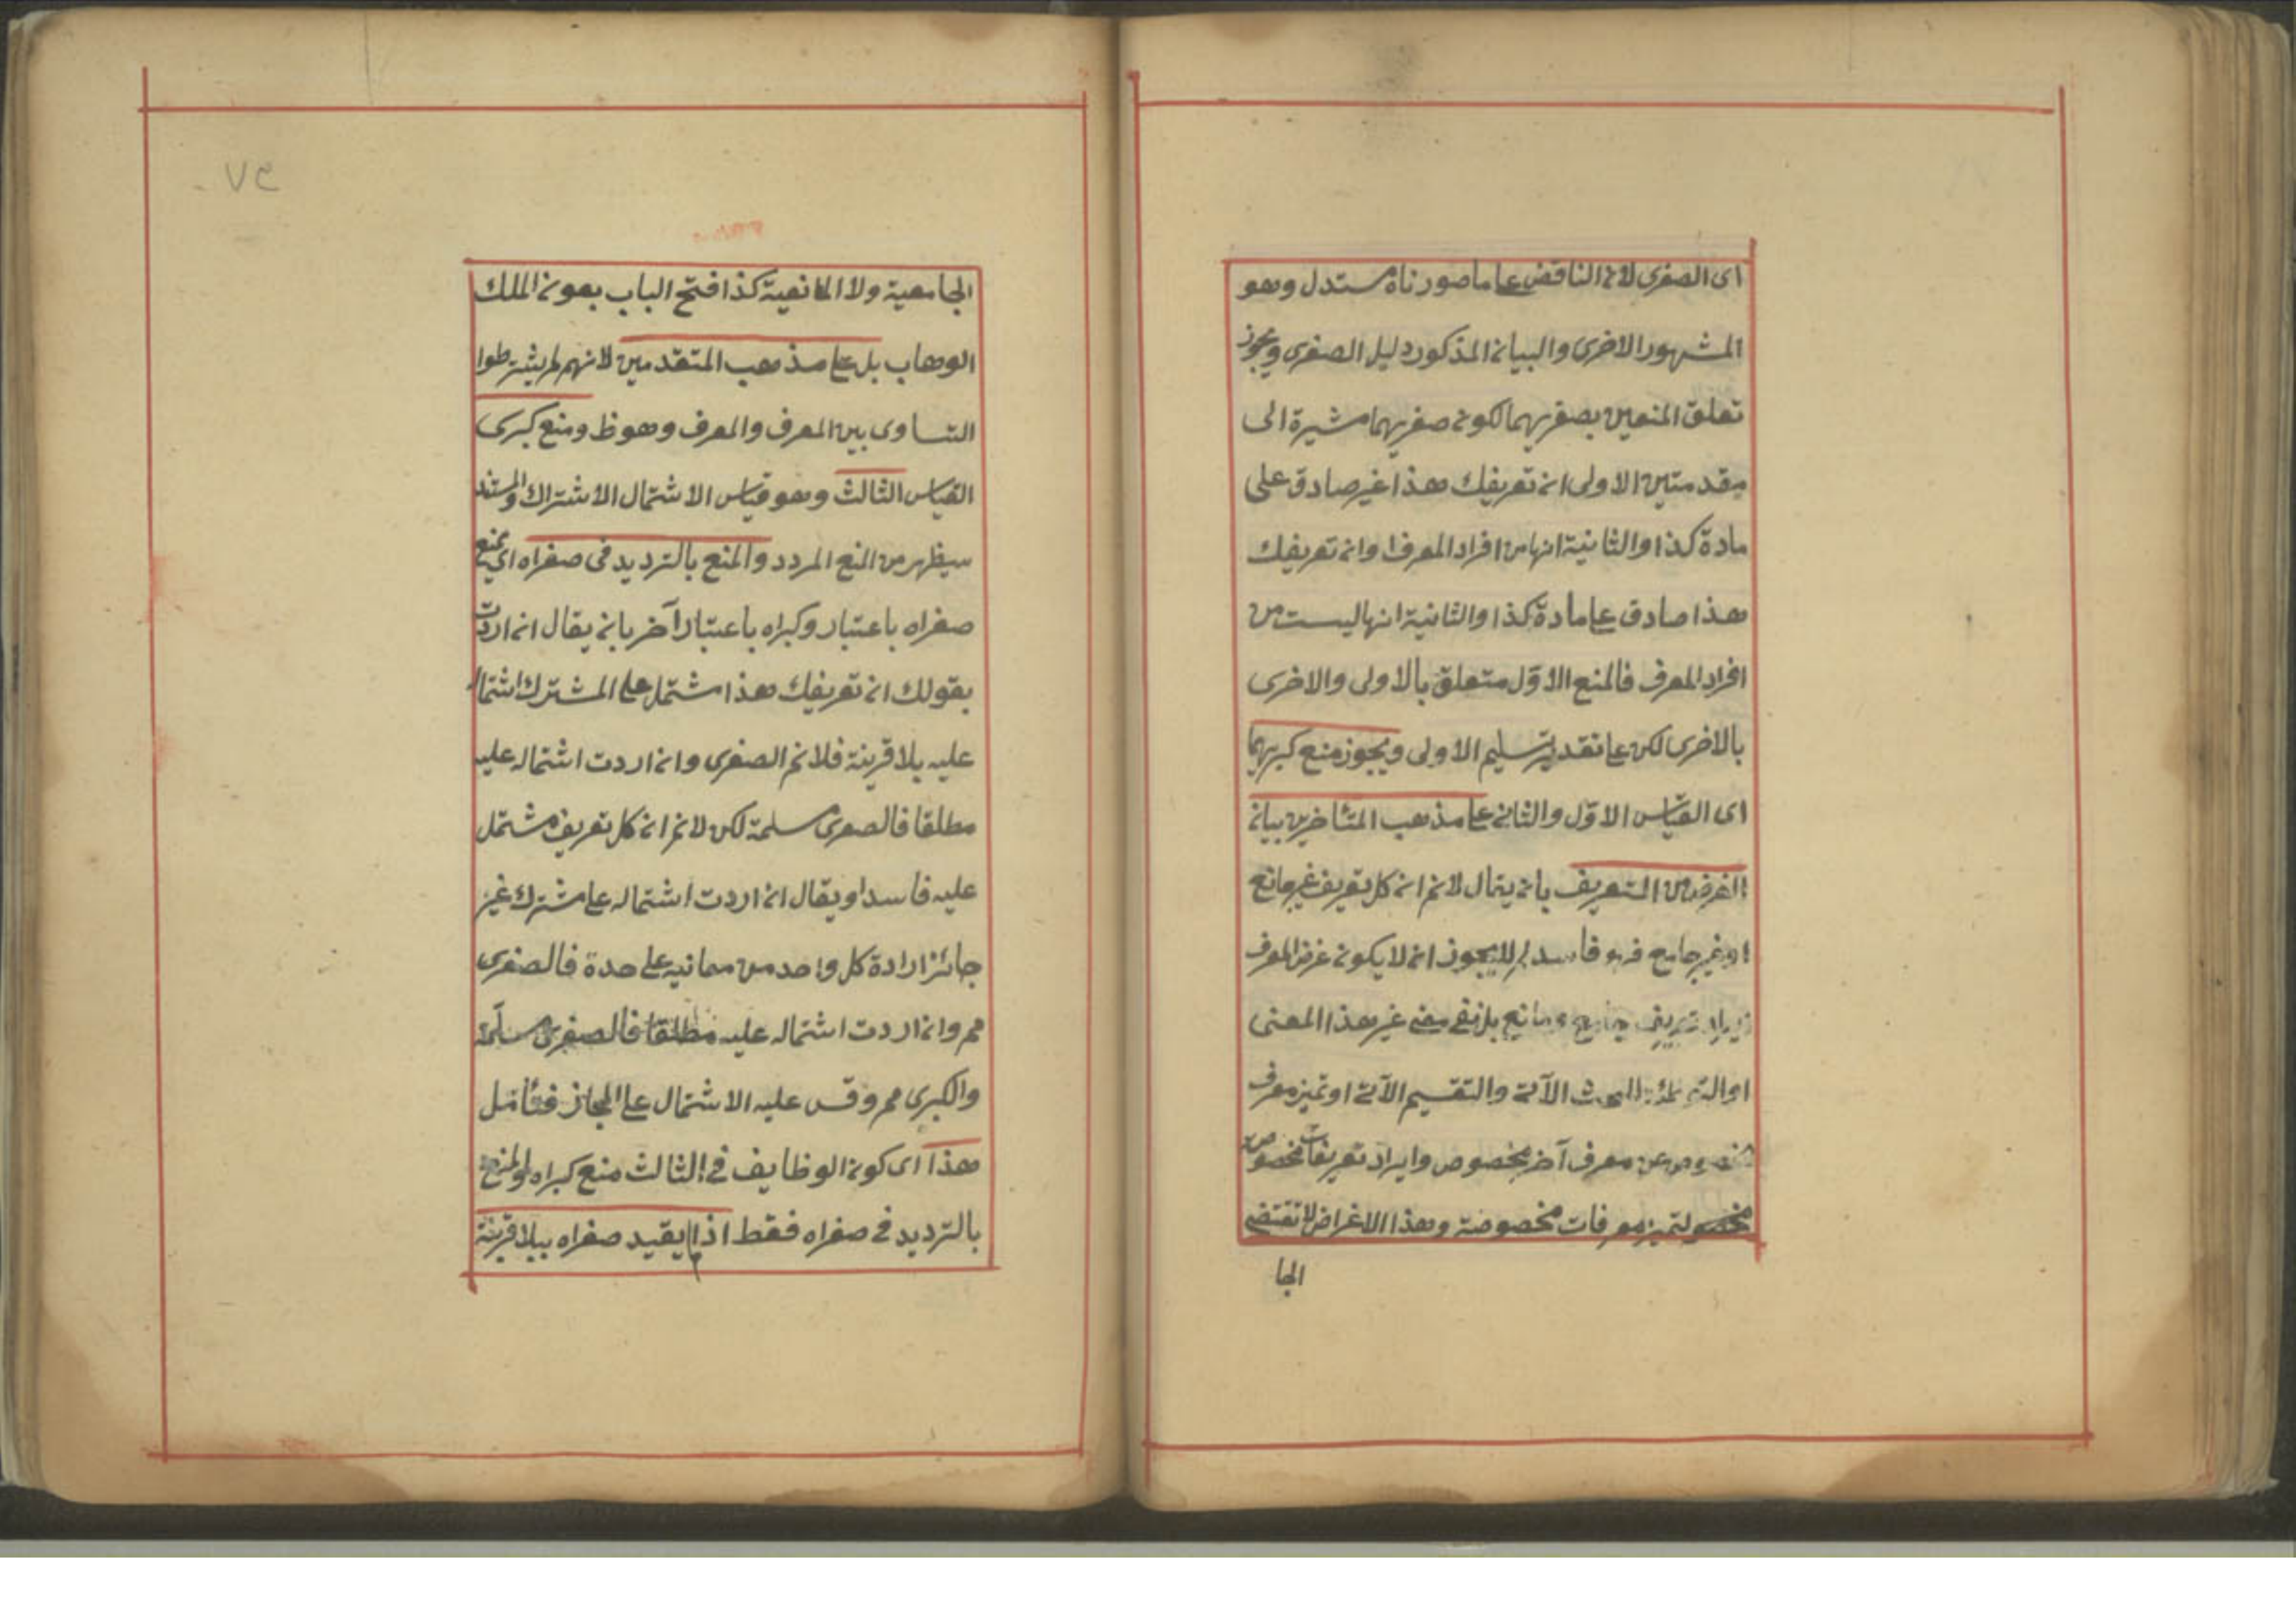 اى الصغرى لان الناقض على ما صورناه مستدل وهو
المشهور الاخرى والبيان المذكور دليل الصغرى ويجوز
تعلق المنعين بصغريهما لكون صغريهما مشيرة الى
مقدمتين الاولى ان تعريفك هذا غير صادق على
مادة كذا والثانية انها من افراد المعرف وان تعريفك
هذا صادق على مادة كذا والثانية انها ليست من
افراد المعرف فالمنع الاوّل متعلق بالاولى والاخرى
بالاخرى لكن على تقدير تسليم الاولى ويجوز منع كبريهما
اى القياس الاوّل والثانى على مذهب المتأخرين بيان
الغرض من التعريف بان يقال لانم ان كل تعريف غير مانع
او غير جامع فهو فاسد لم لا يجوز ان لا يكون غرض المعرف
ايراد تعريف جامع ومانع بل نفى معنى غير هذا المعنى
او البحث الآتى والتقسيم الآتى او تميز معرف
مخصوص عن معرف آخر مخصوص وايراد تعريفات مخصوصة
لتميز معرفات مخصوصة وهذا الاغراض لا تقتضى
الجا
٧٢
الجامعية ولا المانعية كذا فتح الباب بعون الملك
الوهاب بل على مذهب المتقدمين لانهم لم يشترطوا
التساوى بين المعرف والمعرف وهو ظ ومنع كبرى
القياس الثالث وهو قياس الاشتمال الاشتراك والمستند
سيظهر من المنع المردد والمنع بالترديد فى صغراه اى يمنع
صغراه باعتبار وكبراه باعتبار آخر بان يقال ان اردت
بقولك ان تعريفك هذا مشتمل على المشترك اشتماله
عليه بلا قرينة فلانم الصغرى وان اردت اشتماله عليه
مطلقا فالصغرى مسلمة لكن لانم ان كل تعريف مشتمل
عليه فاسد او يقال ان اردت اشتماله على مشترك غير
جائز ارادة كل واحد من معانيه على حدة فالصغرى
مم وان اردت اشتماله عليه مطلقا فالصغرى مسلّمة
والكبرى مم وقس عليه الاشتمال على المجاز فتأمّل
هذا اى كون الوظايف فى الثالث منع كبراه او المنع
بالترديد فى صغراه فقط اذا لم يقيد صغراه ببلا قرينة